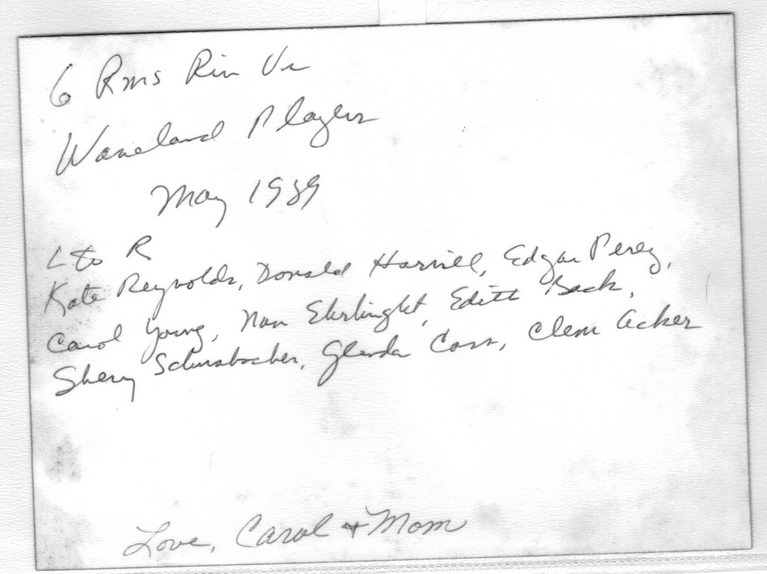 6 Rms Riv Vu
Waveland Players
May 1989
L to R
Kate Reynolds, Donald Harvill, Edgar Perez,
Carol Young, Nan Ehrbright, Edith Back,
Sherry Schwabacher, Glenda Coss, Clem Acker
Love, Carol + Mom